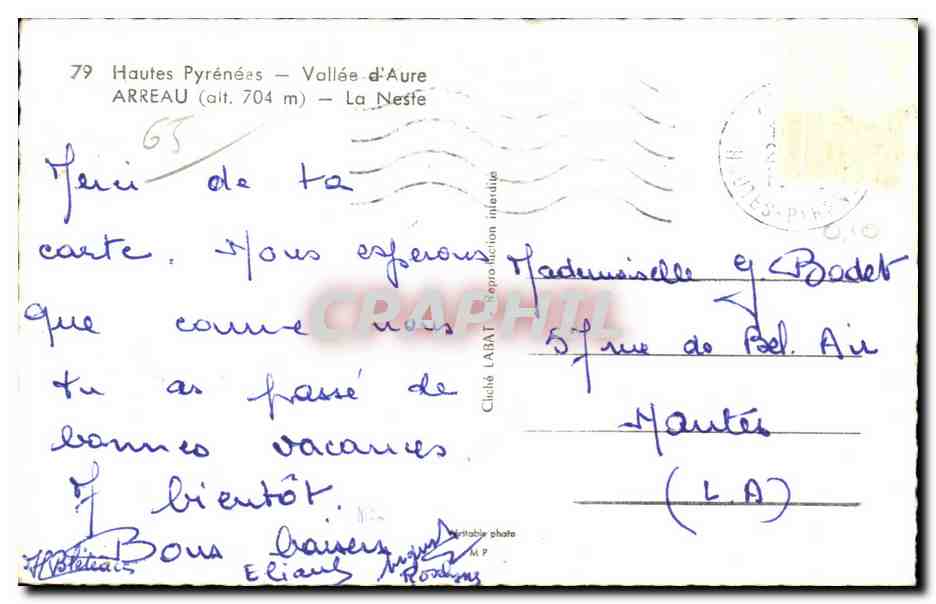 79 Hautes Pyrénées — Vallée d'Aure
ARREAU (alt. 704 m) — La Neste
65
Merci de ta
carte. Nous espérons
que comme nous
tu as passé de
bonnes vacances.
A bientôt.
Bons baisers
Eliane
Cliché LABAT - Reproduction interdite
CRAPHIL
Véritable photo
M P
0,10
Mademoiselle G. Badet
57 rue de Bel. Air
Nantes
(L. A)